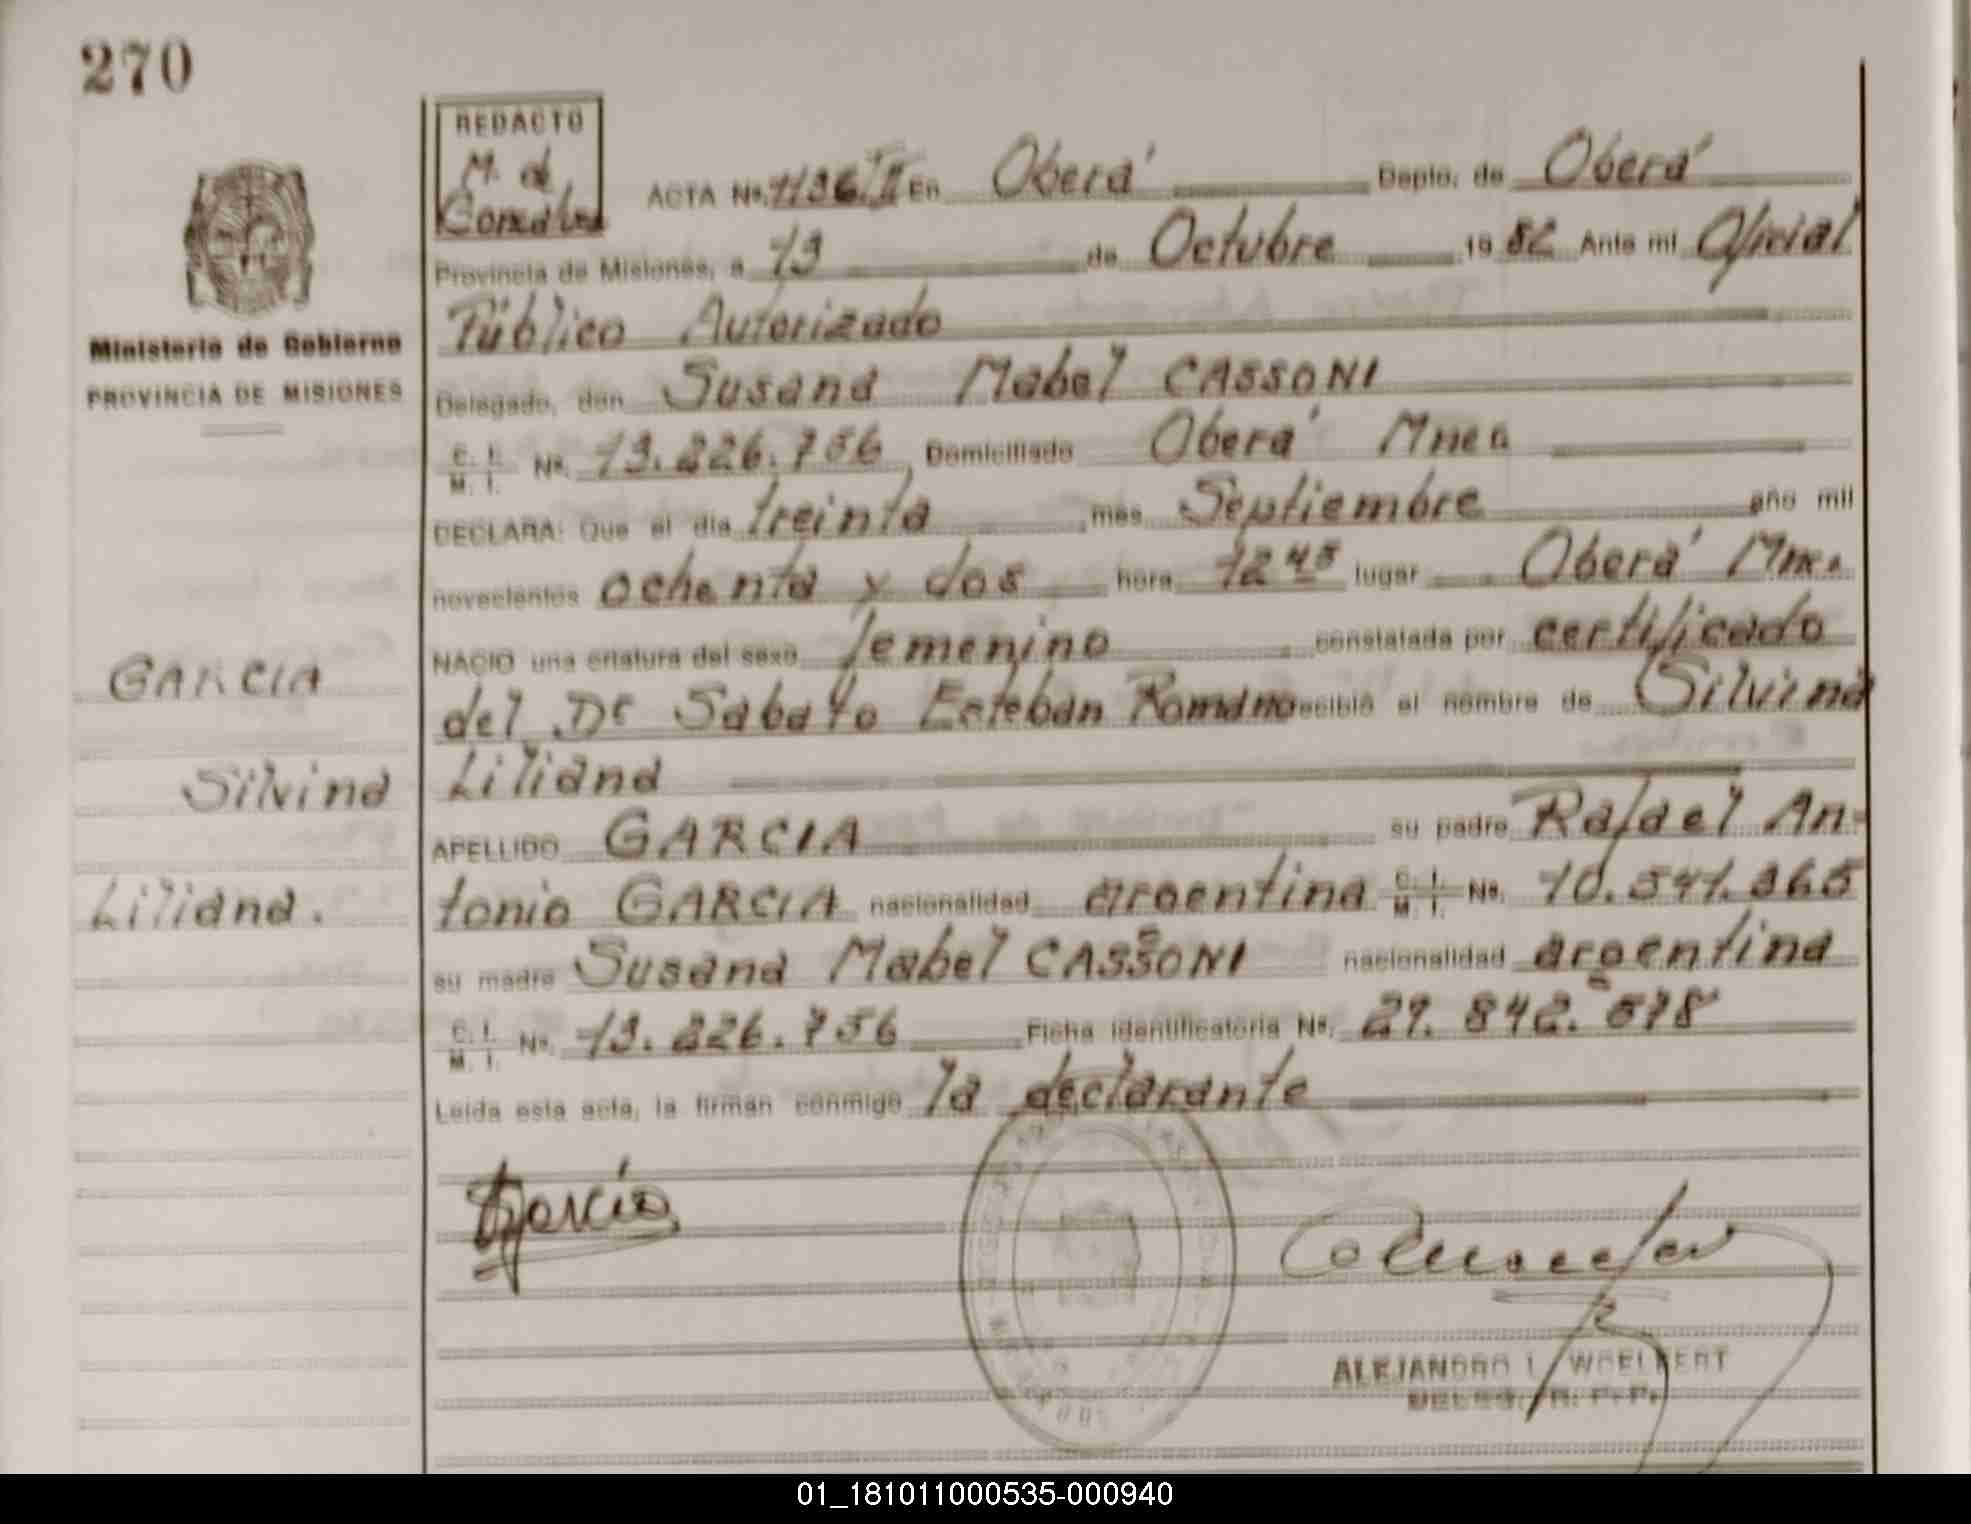 270
REDACTO
M. de
Gonzalez
Ministerio de Gobierno
PROVINCIA DE MISIONES
ACTA Nº. 1136. TII En Oberá Depto. de Oberá
Provincia de Misiones, a 13 de Octubre 19 82 Ante mi Oficial
Público Autorizado
Delegado, don Susana Mabel CASSONI
C. I. M. I. Nº. 13.226.756, Domiciliado Oberá Mnes
DECLARA: Que el día treinta, mes Septiembre año mil
novecientos ochenta y dos hora 12 45 lugar Oberá Mnes.
NACIO una criatura del sexo femenino constatada por certificado
del Dr Sabato Esteban Romano recibió el nombre de Silvina
Liliana
APELLIDO GARCIA su padre Rafael An-
tonio GARCIA nacionalidad argentina C. I. M. I. Nº. 10.541.365
su madre Susana Mabel CASSONI nacionalidad argentina
C. I. M. I. Nº. 13.226.756 Ficha identificatoria Nº. 29.842.578
Leída esta acta, la firman conmigo la declarante
GARCIA
Silvina
Liliana.
Garcia
ALEJANDRO L. WOELFERT
DELEG. R. P. P.
01_181011000535-000940